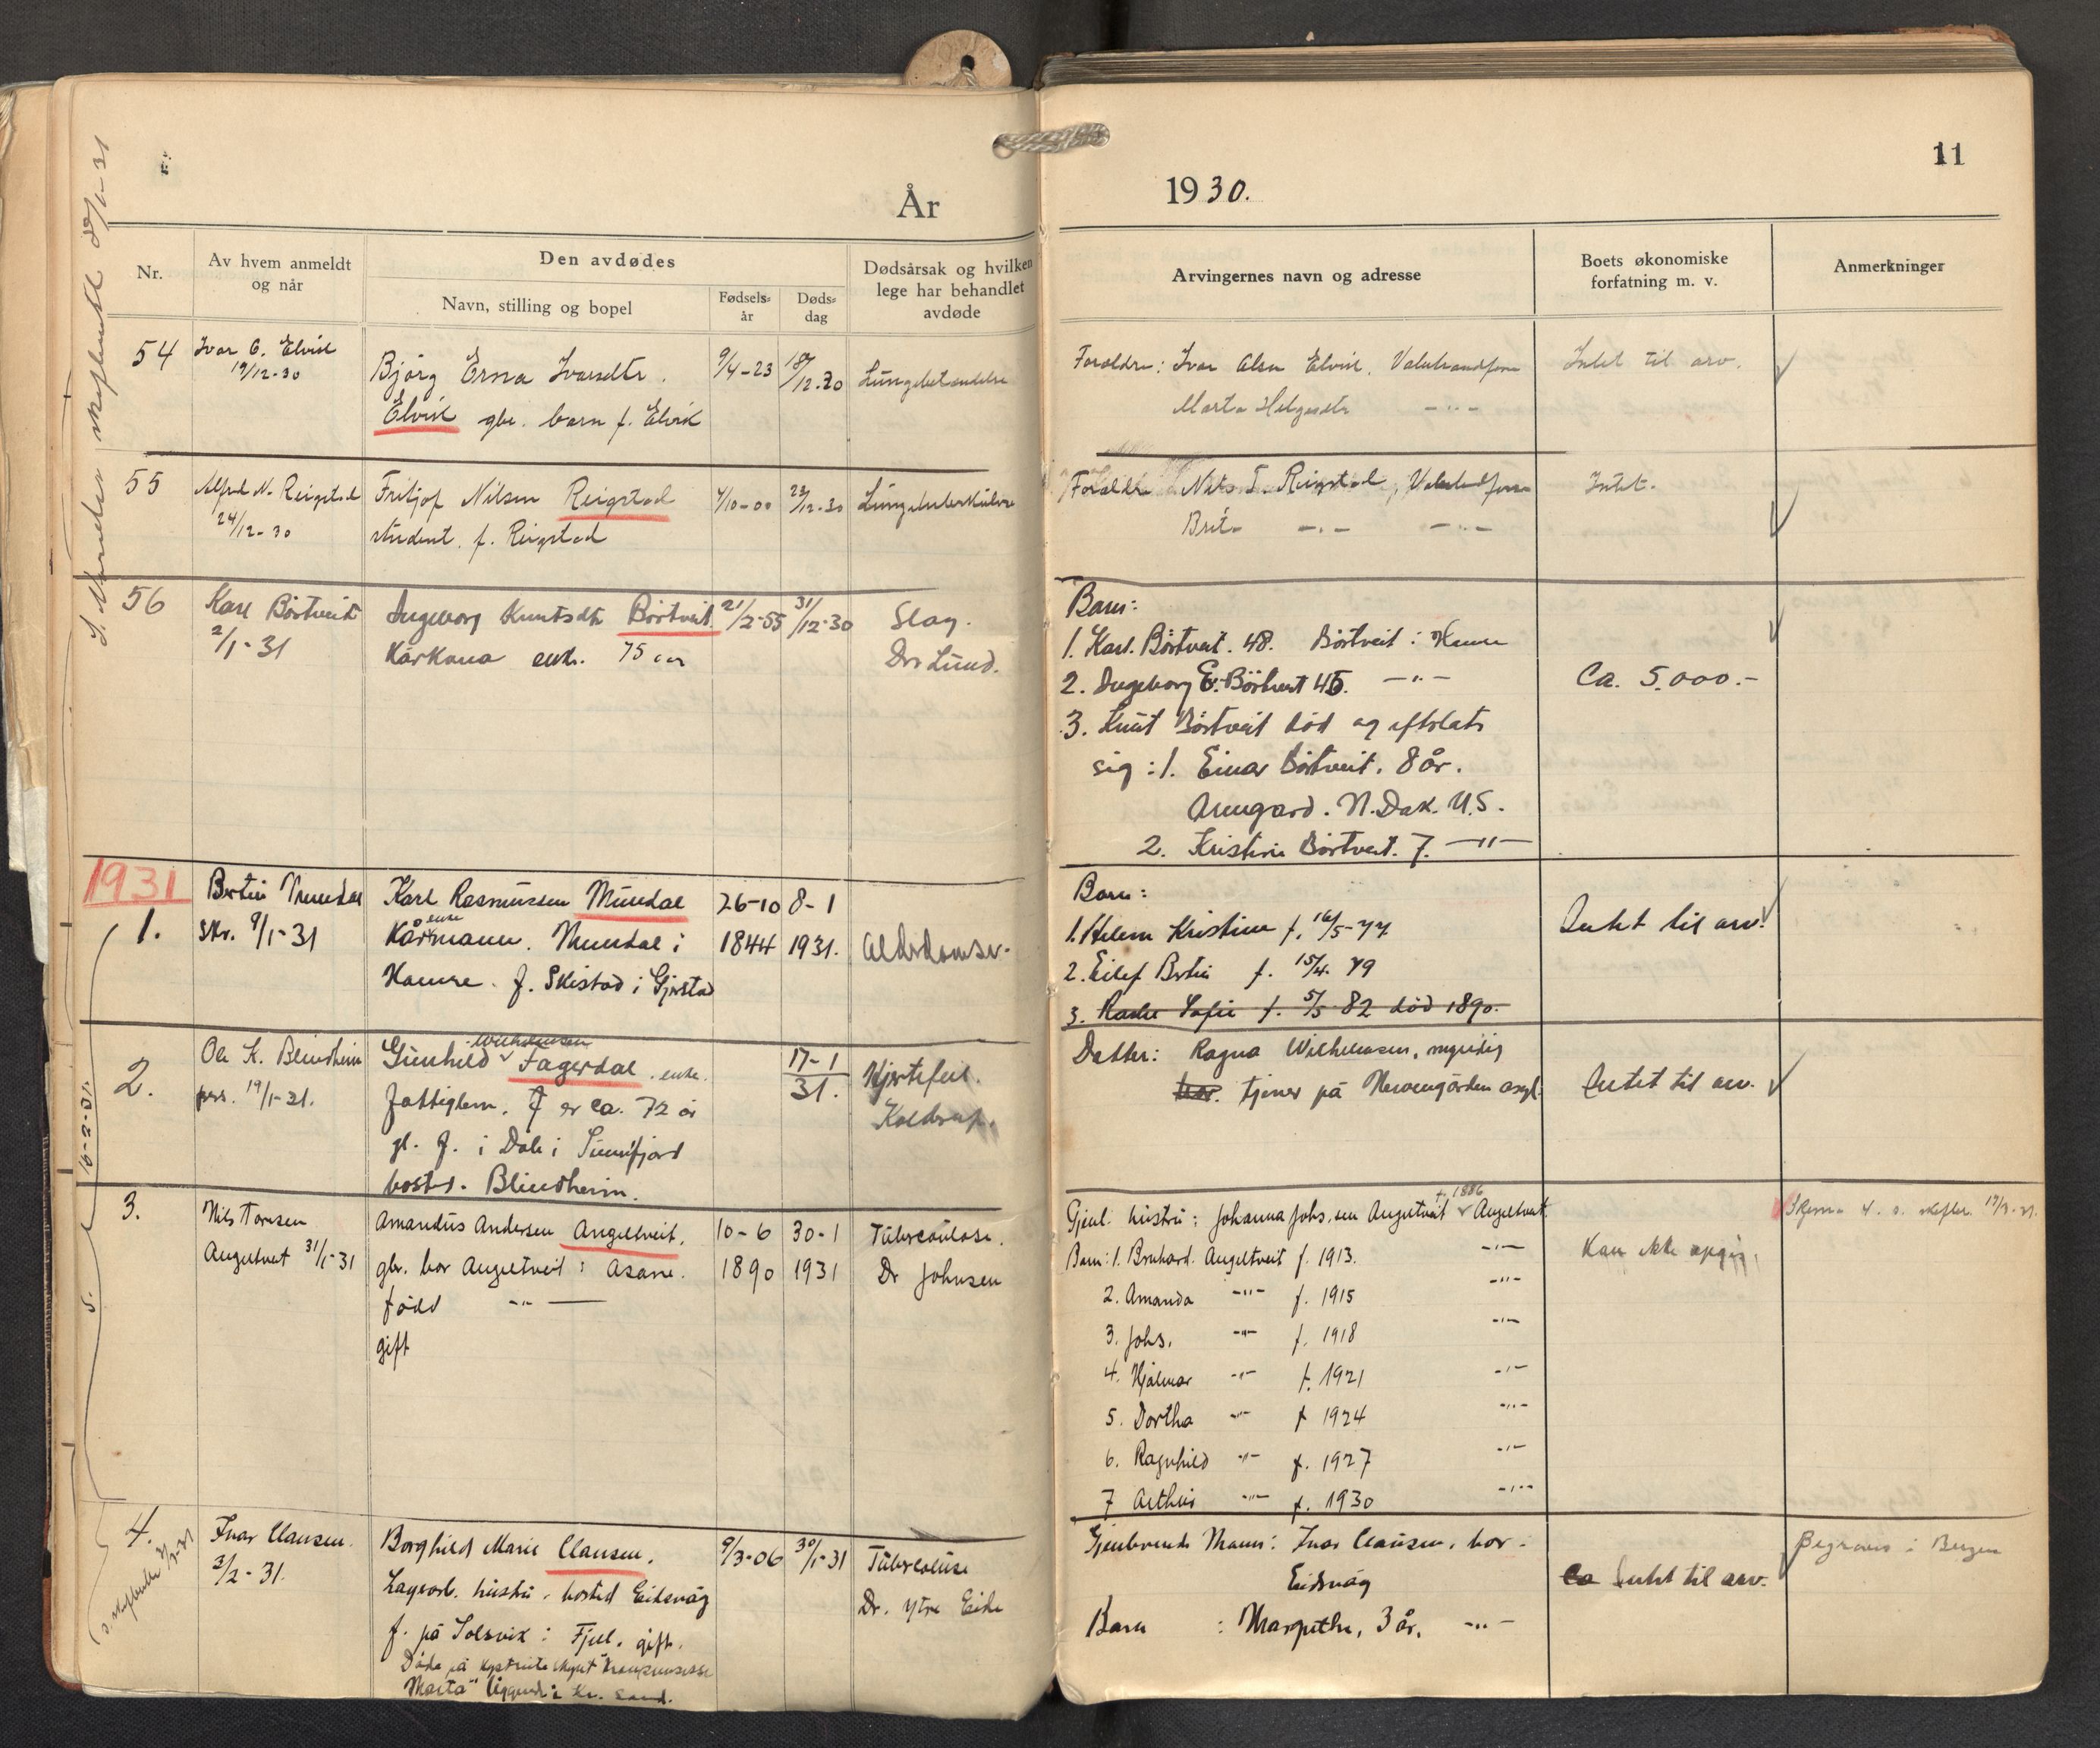 År
1930.
11
Nr.
Av hvem anmeldt
og når
Den avdødes
Navn, stilling og bopel
Fødsels-
år
Døds-
dag
Dødsårsak og hvilken
lege har behandlet
avdøde
Arvingernes navn og adresse
Boets økonomiske
forfatning m. v.
Anmerkninger
54
Ivar O. Elvik
19/12-30
Bjørg Erna Ivarsdtr.
Elvik gbr. barn f. Elvik
9/4-23
18/12.30
Lungebetændelse
Foreldre: Ivar Olsen Elvik, Valestrandfossen
Marta Helgesdtr —"—
Intet til arv.
55
Alfred N. Reigstad
24/12-30
Fritjof Nilsen Reigstad
student. f. Reigstad
4/10-00
23/12-30
Lungetuberkulose
Foreldre Nils T. Reigstad, Valestrandfossen
Brita —"— —"—
Intet.
56
Karl Børtveit
2/1-31
Ingeborg Knutsdtr Børtveit
Kårkona enke. 75 år
21/2-55
31/12-30
Slag.
Dr. Lund.
Barn:
1. Karl. Børtveit. 48. Børtveit i Hamre
2. Ingeborg E. Børtveit 45. —"—
3. Knut Børtveit død og efterlats
sig: 1. Einar Børtveit. 8 år.
N. Dak. U.S.
2. Kristine Børtveit. 7. —"—
Ca. 5.000.-
1931
1.
Bertin Mundal
skr. 9/1-31
Karl Rasmussen Mundal
enke
Kårmann. Mundal i
Hamre. f. Skistad i Gjerstad
26-10
1844
8-1
1931.
Alderdomssv.
Barn:
1. Helene Kristine f. 16/5-77
2. Eilef Bertin f. 15/4. 79
3. Sofie f. 5/5 82 død 1890.
Intet til arv.
2.
Ole K. Blindheim
pers. 19/1-31.
Wilhelmsen
Gunhild Fagerdal. enke.
Fattiglem. f er ca. 72 år
gl. f. i Dale i Sunnfjord
bosted. Blindheim.
17-1
31.
Hjertefeil.
Koldrup.
Datter: Ragna Wilhelmsen, myndig
bor. tjener på asyl.
Intet til arv.
16-2-31.
3.
Nils Tomsen
Angeltveit 31/1-31
Amandus Andersen Angeltveit.
gbr. bor Angeltveit i Åsane.
født —"—
gift
10-6
1890
30-1
1931
Tuberculose.
Dr Johnsen
f. 1886
Gjenl. hustru: Johanna Johs.sen Angeltveit Angeltveit.
Barn: 1. Bernhard. Angeltveit f. 1913. —"—
2. Amanda —"— f. 1915 —"—
3. Johs. —"— f. 1918 —"—
4. Hjalmar —"— f. 1921 —"—
5. Dortha —"— f 1924 —"—
6. Ragnhild —"— f. 1927 —"—
7 Arthur —"— f. 1930 —"—
Kan ikke opgis.
Skjema 4. s. skifter. 17/3-31.
4.
Ivar Clausen.
3/2-31.
Borghild Marie Clausen.
Lagerarb. hustru. bosted Eidsvåg
f. på Solsvik i Fjell. gift.
Døde på kystruteskipet "Kronprinsesse
Marta" liggende i Kr. sand.
9/3-06
30/1-31
Tuberculose
Dr. Ytre Eide
Gjenlevende Mann: Ivar Clausen. bor
Eidsvåg
Barn : Margrethe, 3 år. —"—
Ca Intet til arv.
Begraves i Bergen